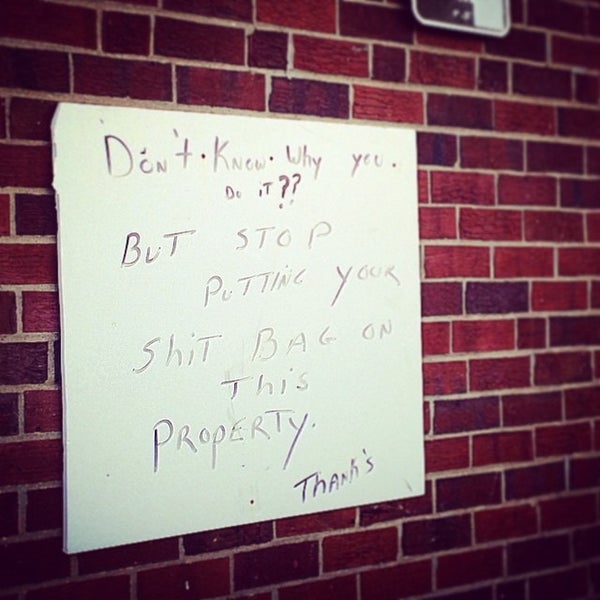 Don't. Know. Why you.
Do iT??
BUT STOP
PUTTING YOUR
ShiT BAG ON
This
PROPERTY.
THANK'S